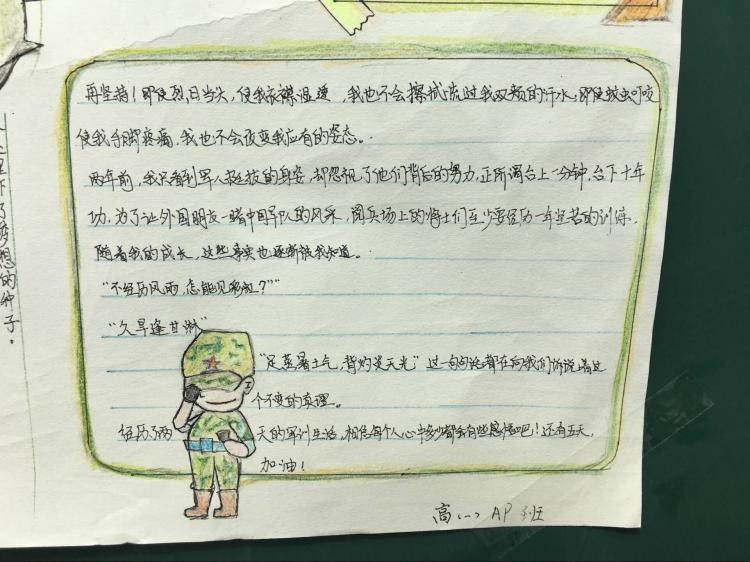 再坚持！即使烈日当头，使我衣襟湿透，我也不会擦拭流过我双颊的汗水；即使蚊虫叮咬
使我手脚疼痛，我也不会改变我应有的姿态。
两年前，我只看到军人挺拔的身姿，却忽视了他们背后的努力，正所谓台上一分钟，台下十年
功，为了让外国朋友一睹中国军队的风采，阅兵场上的将士们至少要经历一年坚苦的训练。
随着我的成长，这些事实也逐渐被我知道。
“不经历风雨，怎能见彩虹？”
“久旱逢甘淋”
“足蒸暑土气，背灼炎天光”这一句句话都在向我们诉说着这
个不变的真理。
经历了两天的军训生活，相信每个人心中多少都会有些感悟吧！还有五天，
加油！
高(一) AP班
里下了梦想的种子。